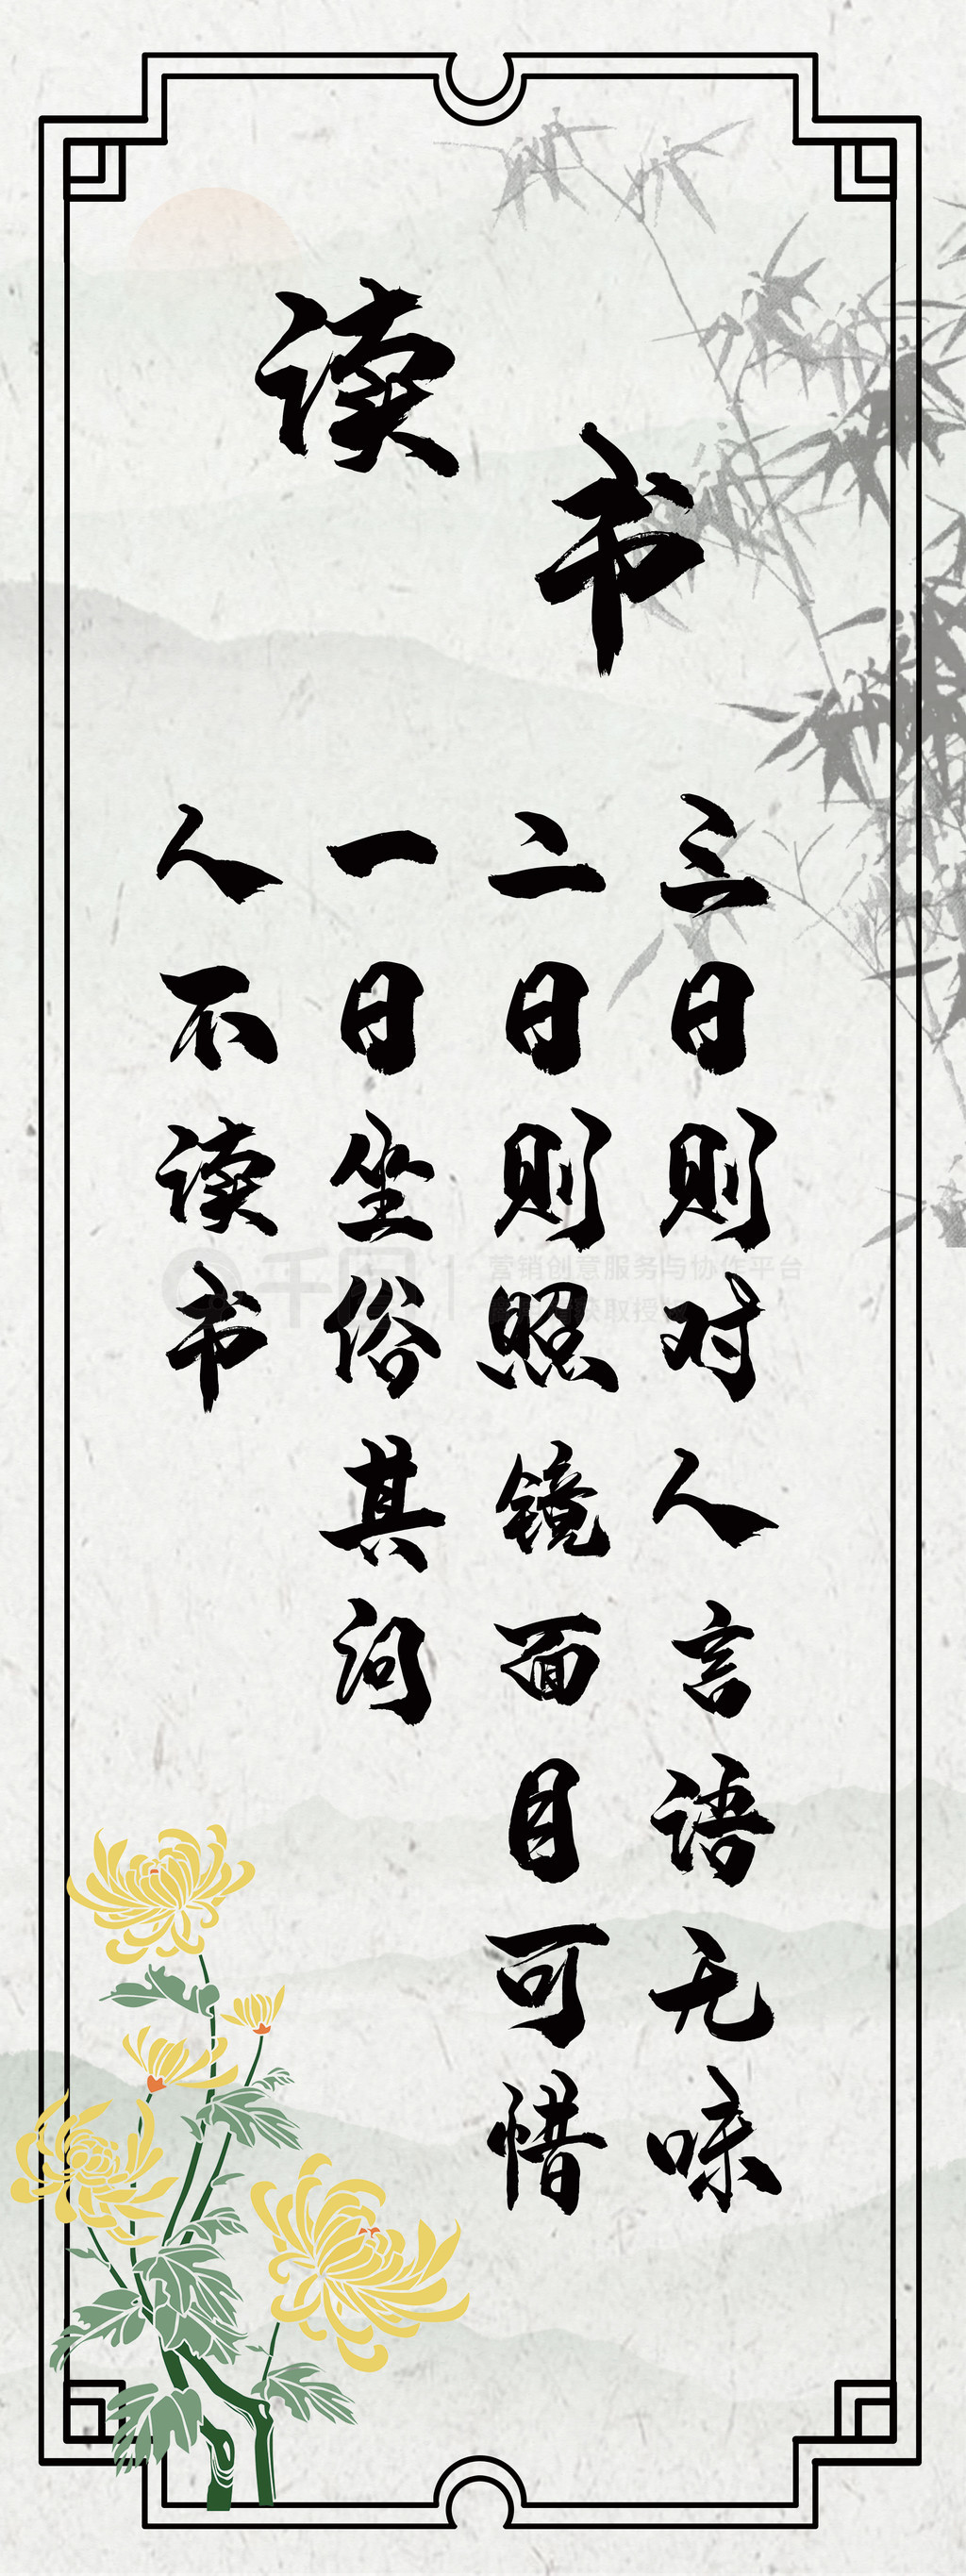 读
书
人不读书
一日坐俗其问
二日则照镜面目可惜
三日则对人言语无味
千图
营销创意服务与协作平台
获取授权